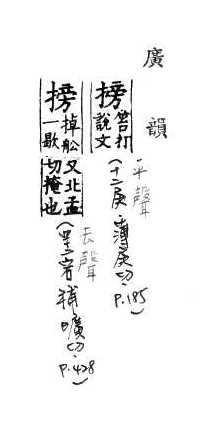 廣韻
搒笞打說文
平聲
(十二庚 薄庚切. P.185)
搒掉船一歇又北孟切掩也
去聲
補曠切. P.428)